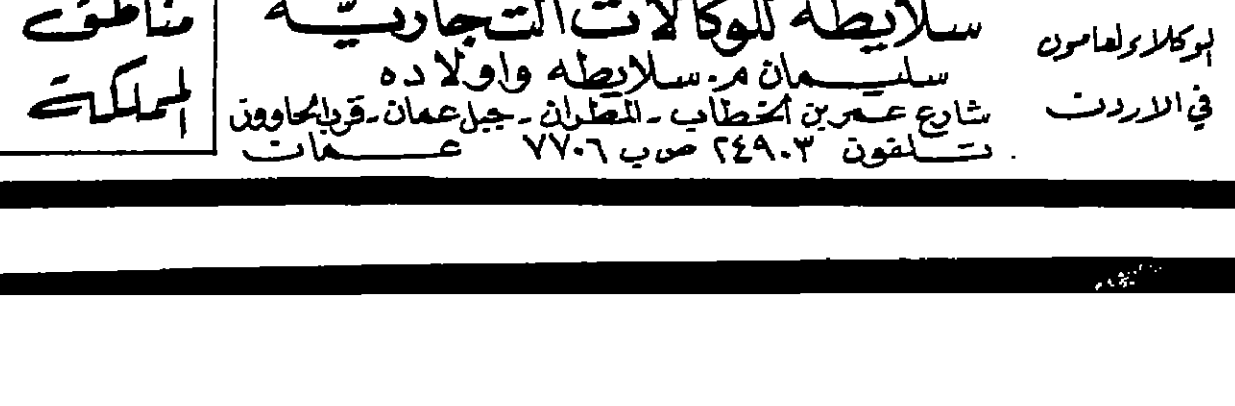 الوكلاء العامون
في الاردن
سلايطه للوكالات التجارية
سليمان م. سلايطه واولاده
شارع عمر بن الخطاب - المطران - جبل عمان - قرب الحاووز
تلفون ٢٤٩٠٣ ص ب ٧٧٠٦ عمان
مناطق
المملكة